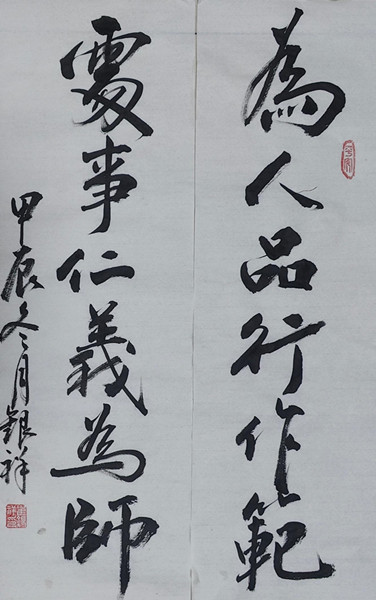 為人品行作範
處事仁義為師
甲辰冬月銀祥